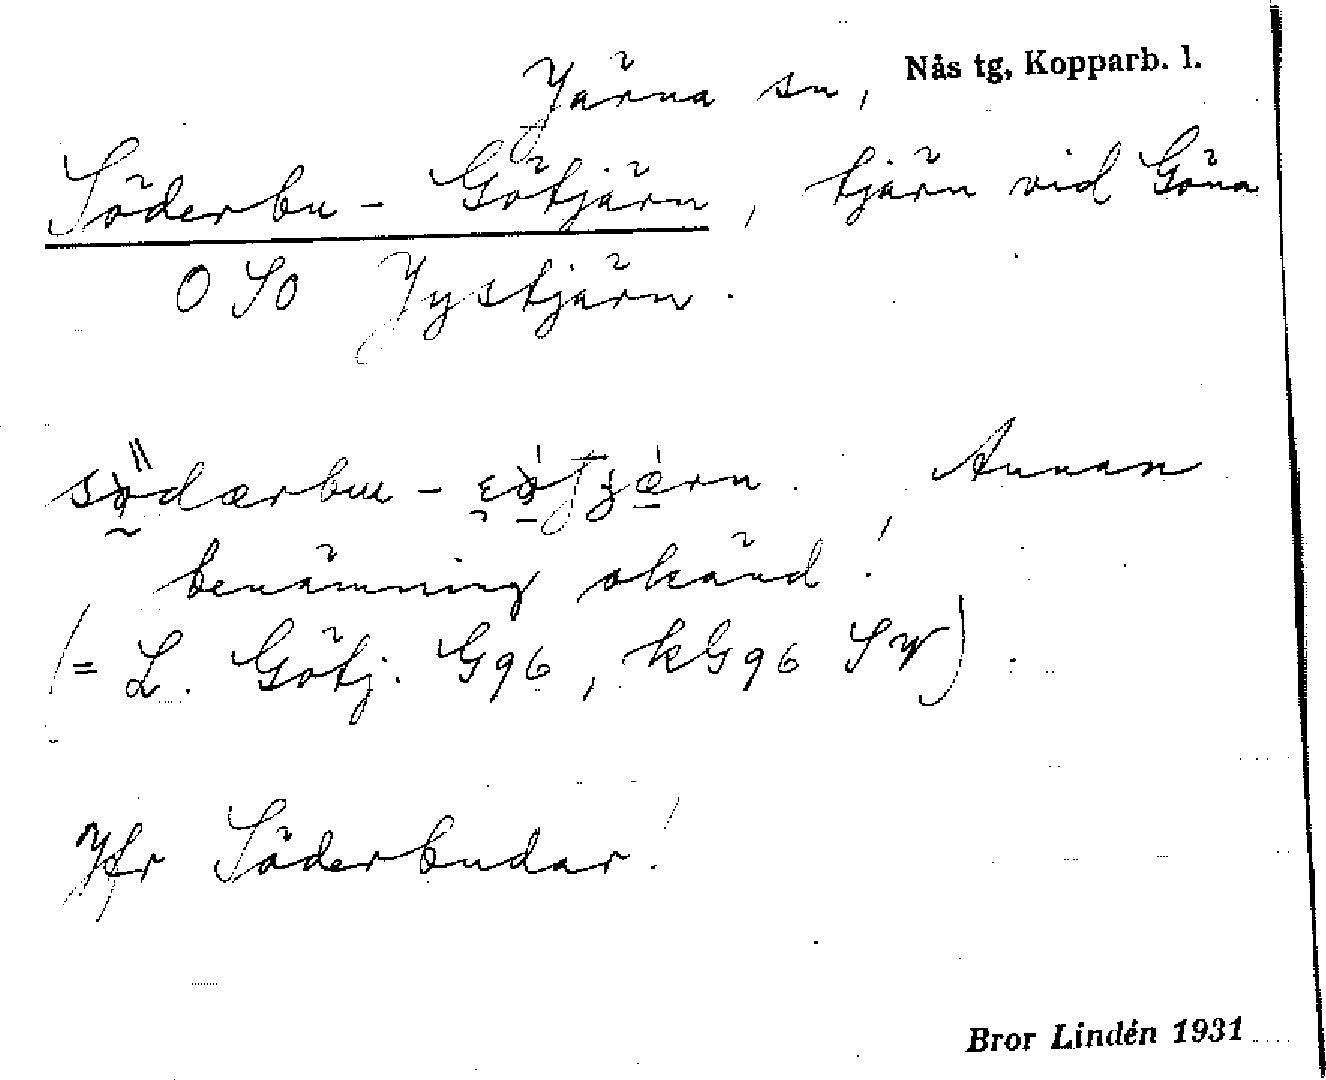 Järna sn, Nås tg, Kopparb. l.
Söderbu-Götjärn, tjärn vid Göna
O SO Jystjärn.
Annan
benämning okänd!
(= L. Götj. G96, kG96 SV).
Jfr Söderbudar!
Bror Lindén 1931